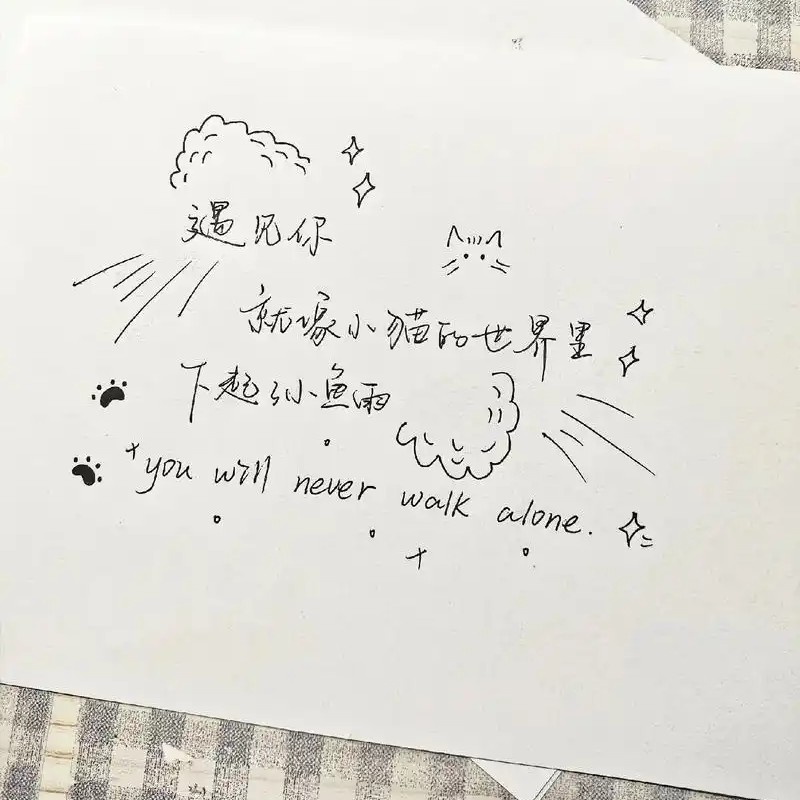 遇见你
就像小猫的世界里
下起了小鱼雨
you will never walk alone.